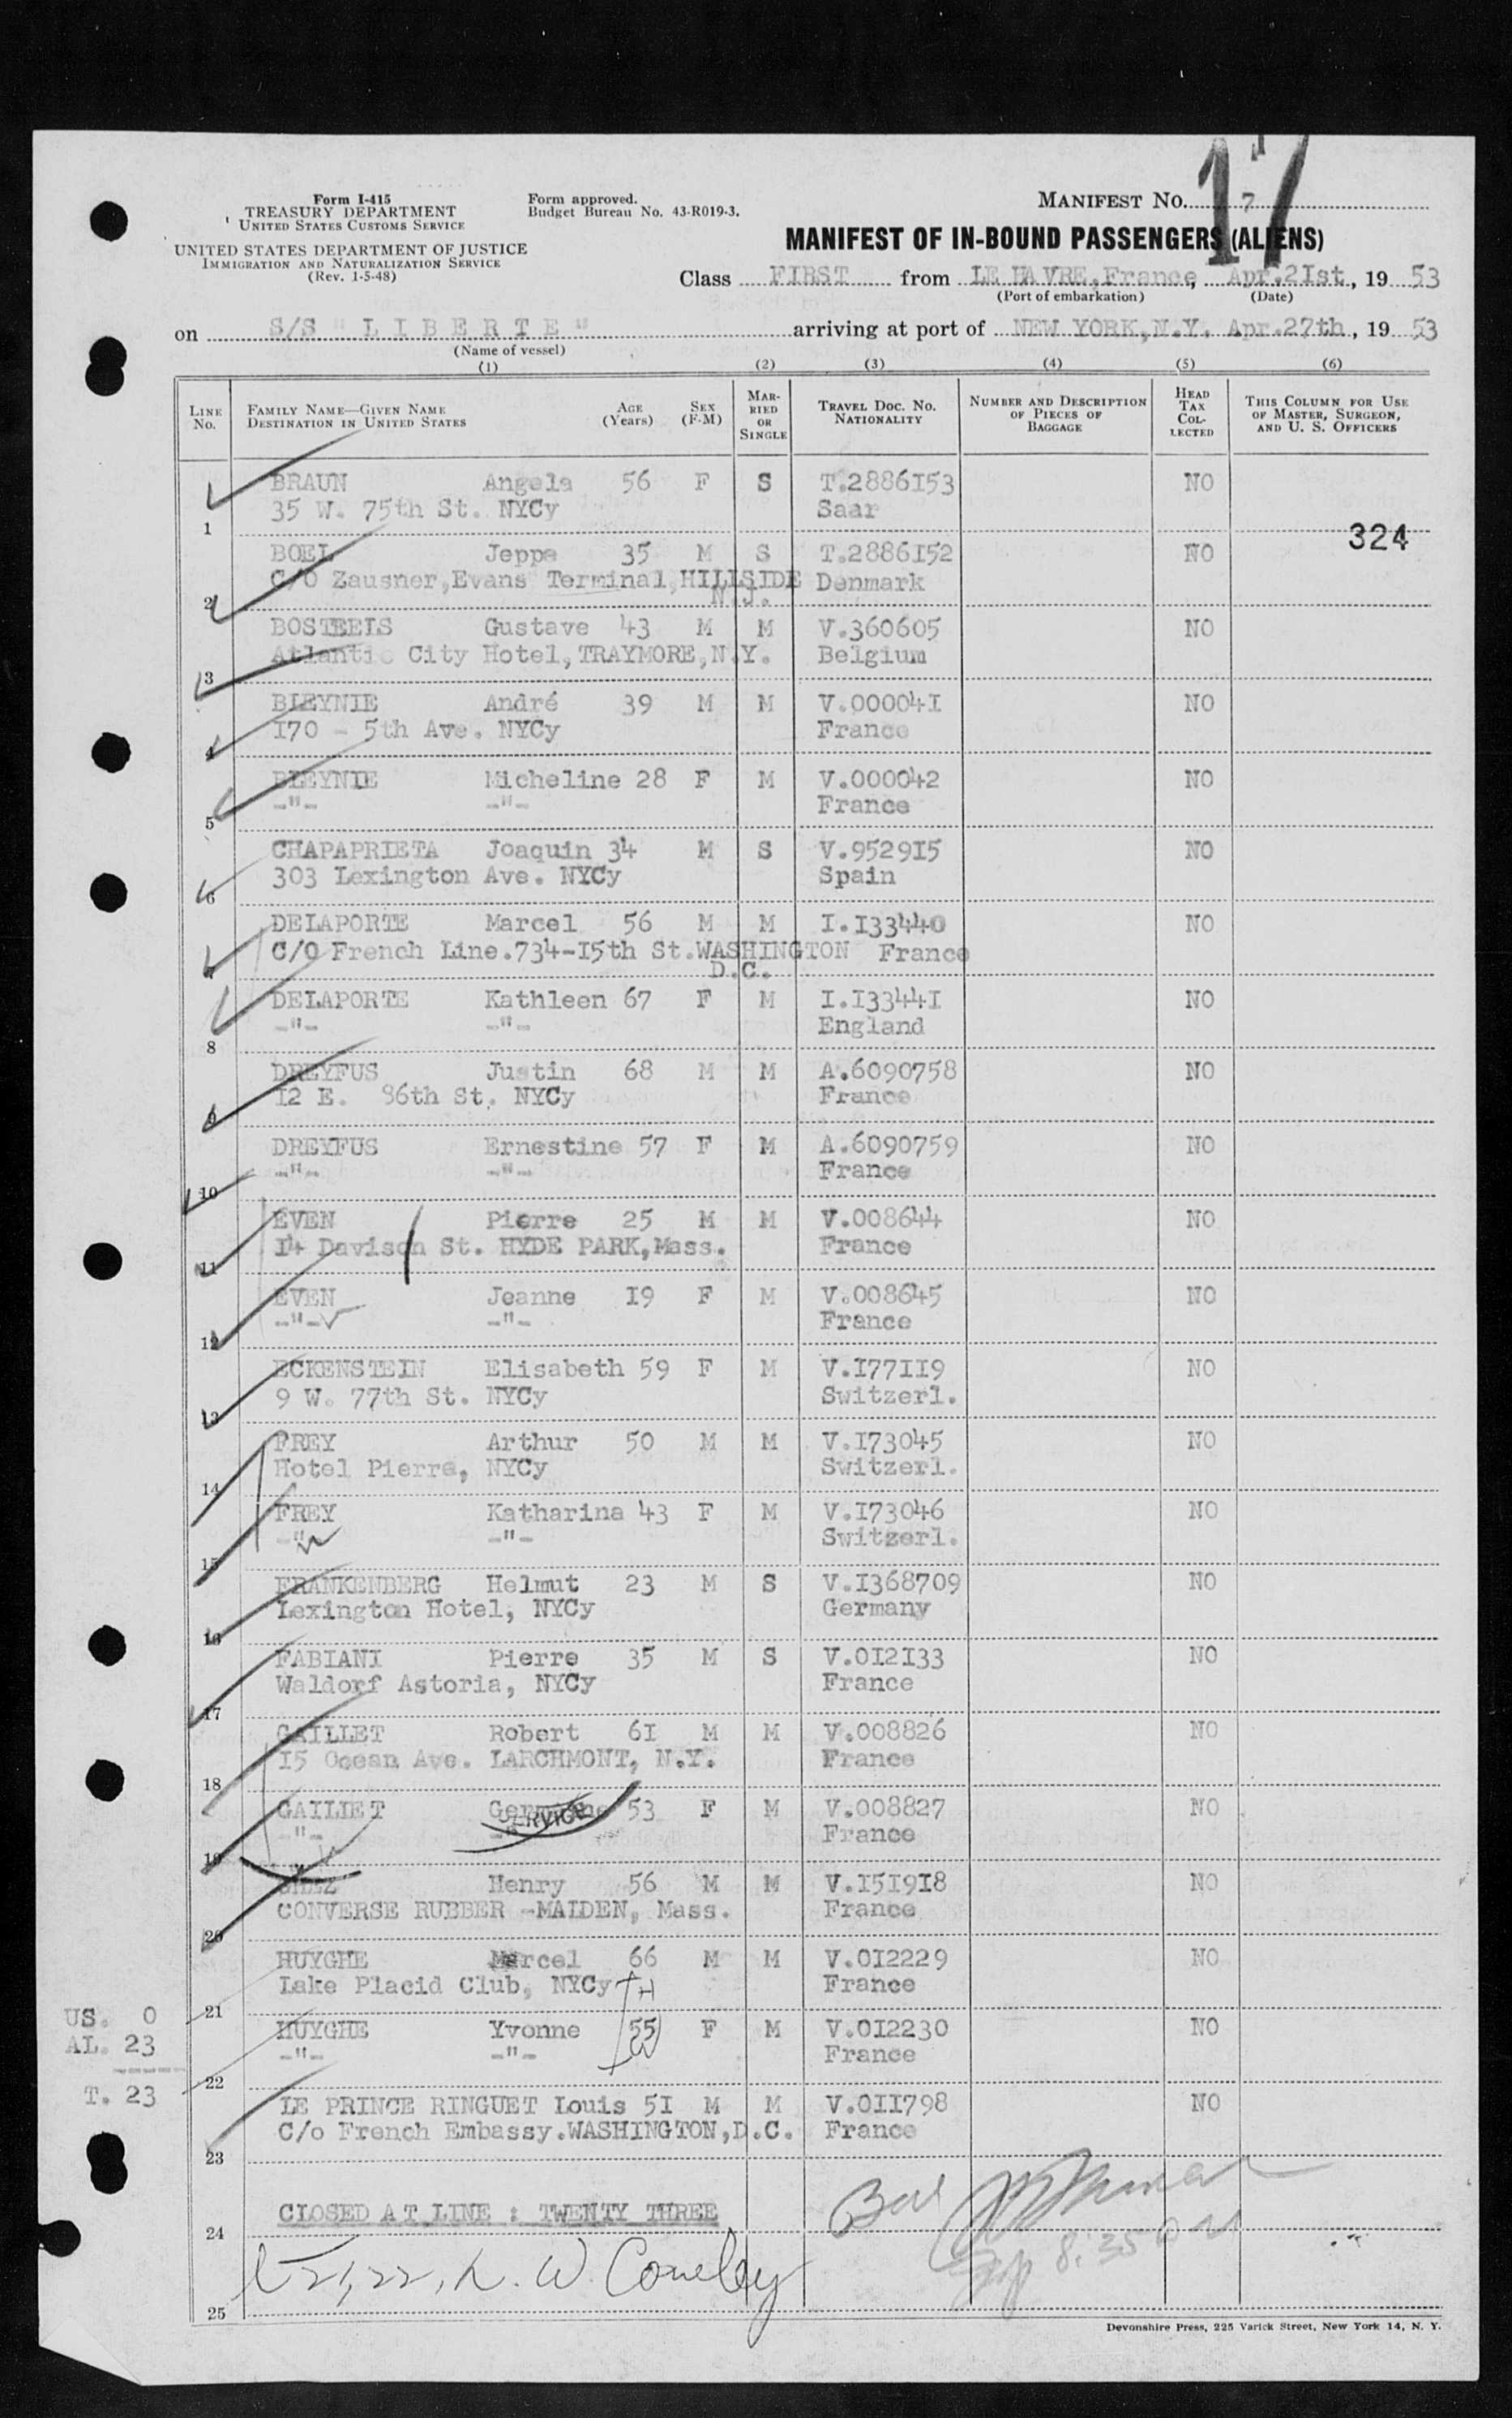 Form I-415
TREASURY DEPARTMENT
UNITED STATES CUSTOMS SERVICE
UNITED STATES DEPARTMENT OF JUSTICE
IMMIGRATION AND NATURALIZATION SERVICE
(Rev. 1-5-48)
Form approved.
Budget Bureau No. 43-R019-3.
MANIFEST NO. 7
17
MANIFEST OF IN-BOUND PASSENGERS (ALIENS)
Class FIRST from LE HAVRE,France, Apr.2Ist, 19 53
(Port of embarkation) (Date)
on S/S " L I B E R T E " arriving at port of NEW YORK,N.Y. Apr.27th, 19 53
(Name of vessel)
(1) (2) (3) (4) (5) (6)
LINE No. FAMILY NAME—GIVEN NAME DESTINATION IN UNITED STATES AGE (Years) SEX (F-M) MARRIED OR SINGLE TRAVEL DOC. NO. NATIONALITY NUMBER AND DESCRIPTION OF PIECES OF BAGGAGE HEAD TAX COLLECTED THIS COLUMN FOR USE OF MASTER, SURGEON, AND U. S. OFFICERS
BRAUN Angela 56 F S T.2886I53 NO
1 35 W. 75th St. NYCy Saar
324
BOEL Jeppe 35 M S T.2886I52 NO
C/O Zausner,Evans Terminal,HILLSIDE Denmark
2 N.J.
BOSTEELS Gustave 43 M M V.360605 NO
3 Atlantic City Hotel,TRAYMORE,N.Y. Belgium
BLEYNIE André 39 M M V.00004I NO
4 I70 - 5th Ave. NYCy France
BLEYNIE Micheline 28 F M V.000042 NO
5 -"- -"- France
CHAPAPRIETA Joaquin 34 M S V.9529I5 NO
6 303 Lexington Ave. NYCy Spain
DELAPORTE Marcel 56 M M I.I33440 NO
7 C/O French Line.734-I5th St.WASHINGTON France
D.C.
DELAPORTE Kathleen 67 F M I.I3344I NO
8 -"- -"- England
DREYFUS Justin 68 M M A.6090758 NO
9 I2 E. 86th St. NYCy France
DREYFUS Ernestine 57 F M A.6090759 NO
10 -"- -"- France
EVEN Pierre 25 M M V.008644 NO
11 I4 Davison St. HYDE PARK,Mass. France
EVEN Jeanne I9 F M V.008645 NO
12 -"- -"- France
ECKENSTEIN Elisabeth 59 F M V.I77II9 NO
13 9 W. 77th St. NYCy Switzerl.
FREY Arthur 50 M M V.I73045 NO
14 Hotel Pierre, NYCy Switzerl.
FREY Katharina 43 F M V.I73046 NO
15 -"- -"- Switzerl.
FRANKENBERG Helmut 23 M S V.I368709 NO
16 Lexington Hotel, NYCy Germany
FABIANI Pierre 35 M S V.0I2I33 NO
17 Waldorf Astoria, NYCy France
GAILLET Robert 6I M M V.008826 NO
18 I5 Ocean Ave. LARCHMONT, N.Y. France
GAILLET Germaine 53 F M V.008827 NO
SERVICE
19 -"- -"- France
Henry 56 M M V.I5I9I8 NO
20 CONVERSE RUBBER -MALDEN, Mass. France
HUYGHE Marcel 66 M M V.0I2229 NO
21 Lake Placid Club, NYCy H France
HUYGHE Yvonne 55 F M V.0I2230 NO
22 -"- -"- W France
US. 0
AL. 23
-----
T. 23
LE PRINCE RINGUET Louis 5I M M V.0II798 NO
23 C/o French Embassy.WASHINGTON,D.C. France
24 CLOSED AT LINE : TWENTY THREE
21,22, W.
8:35
25
Devonshire Press, 225 Varick Street, New York 14, N. Y.